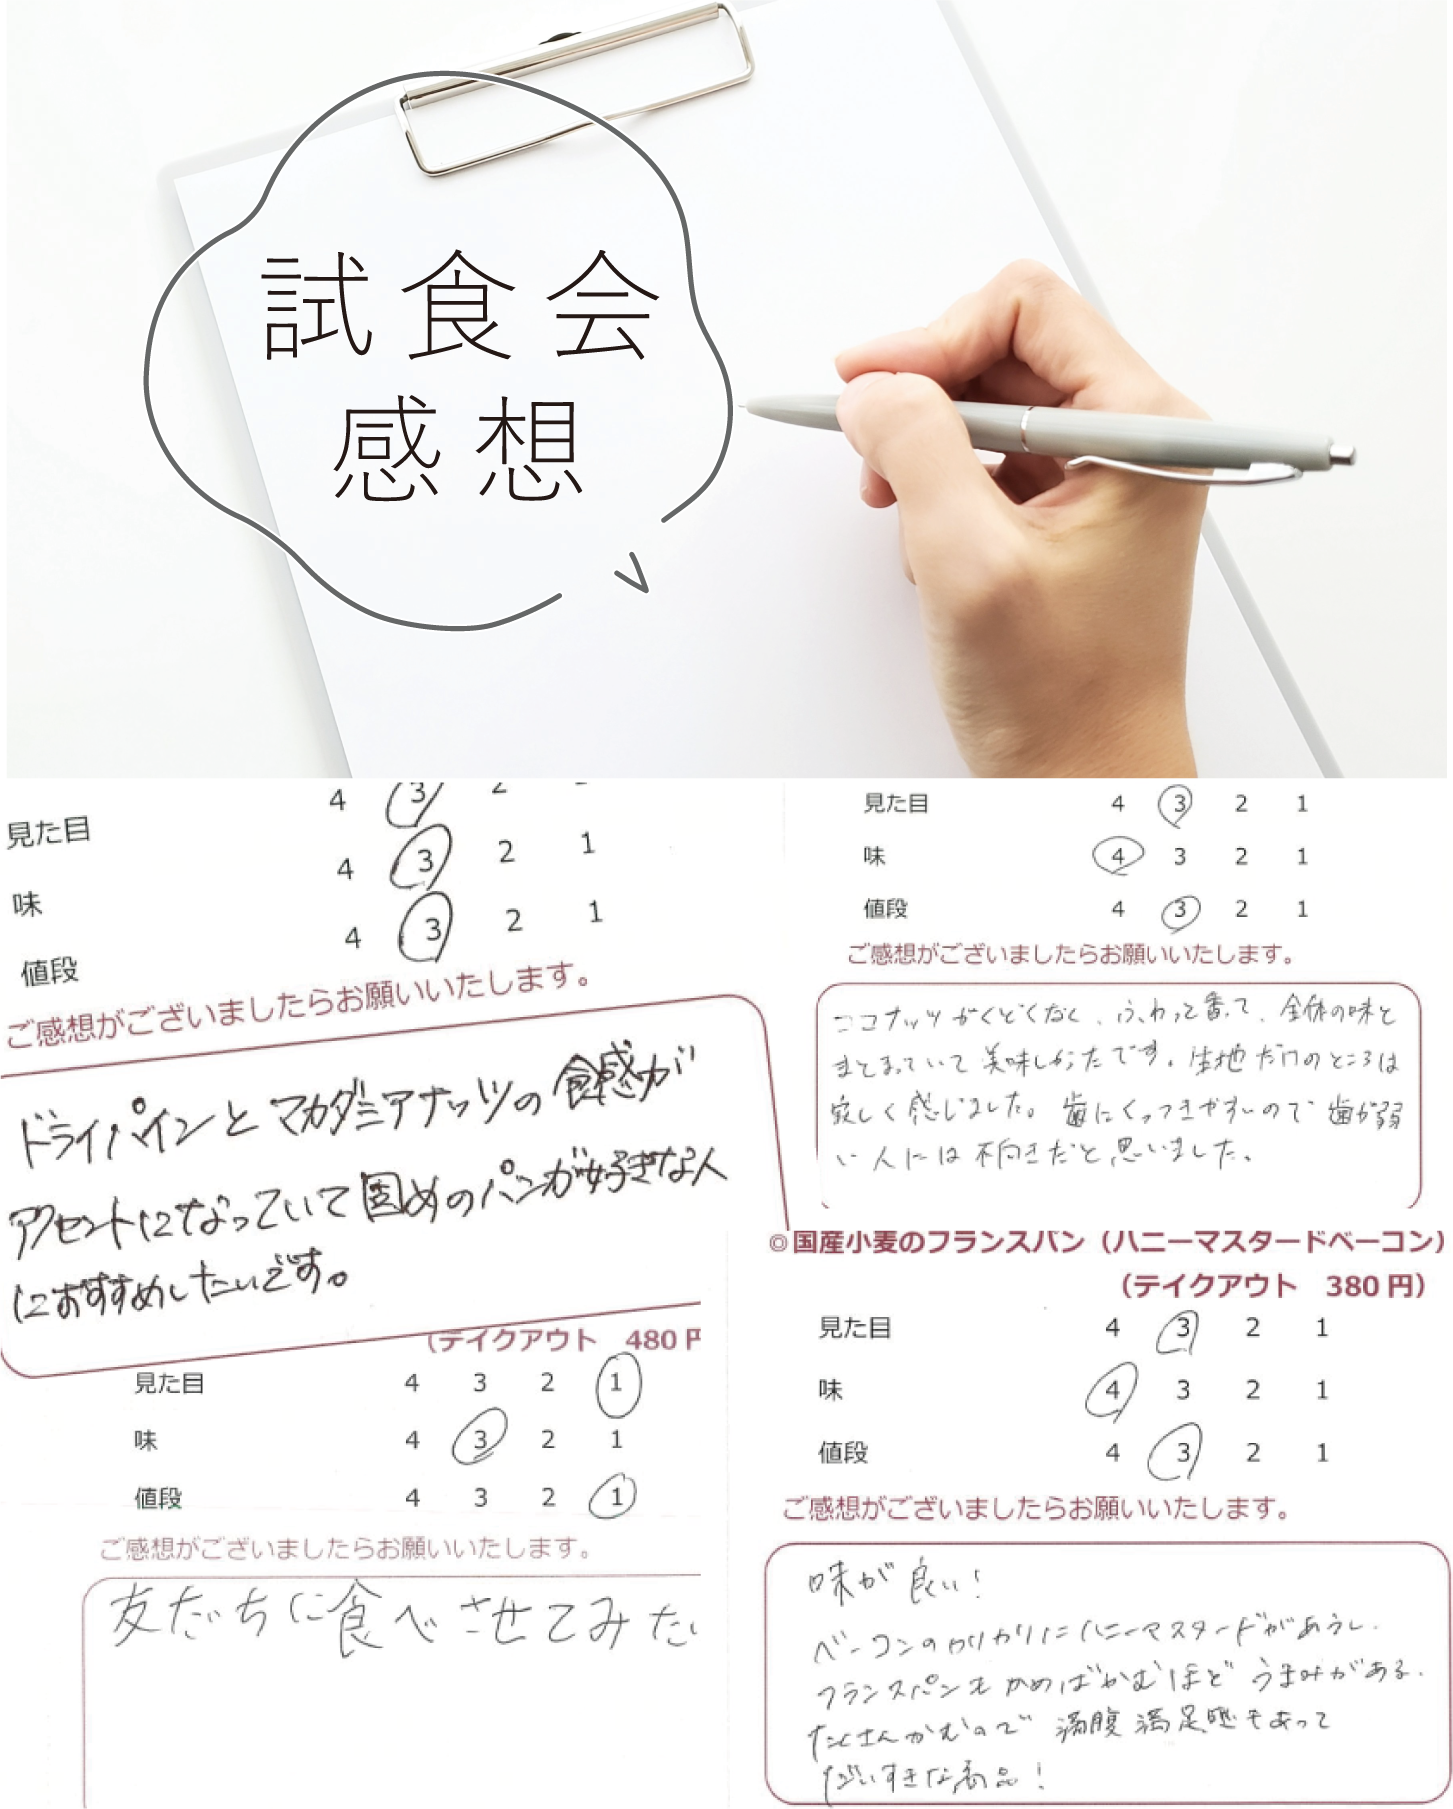 試食会
感想
見た目 4 3 2
味 4 3 2 1
値段 4 3 2 1
ご感想がございましたらお願いいたします。
ドライパインとマカダミアナッツの食感が
アクセントになっていて固めのパンが好きな人
におすすめしたいです。
見た目 4 3 2 1
味 4 3 2 1
値段 4 3 2 1
ご感想がございましたらお願いいたします。
ココナッツがくどくなく、ふわっと香って、全体の味と
まとまっていて美味しかったです。生地だけのところは
寂しく感じました。歯にくっつきやすいので歯が弱
い人には不向きだと思いました。
(テイクアウト 480円
見た目 4 3 2 1
味 4 3 2 1
値段 4 3 2 1
ご感想がございましたらお願いいたします。
友だちに食べさせてみたい
◎国産小麦のフランスパン（ハニーマスタードベーコン）
（テイクアウト 380円）
見た目 4 3 2 1
味 4 3 2 1
値段 4 3 2 1
ご感想がございましたらお願いいたします。
味が良い！
ベーコンのカリカリにハニーマスタードがあうし、
フランスパンもかめばかむほどうまみがある。
たくさんかむので満腹満足感もあって
だいすきな商品！